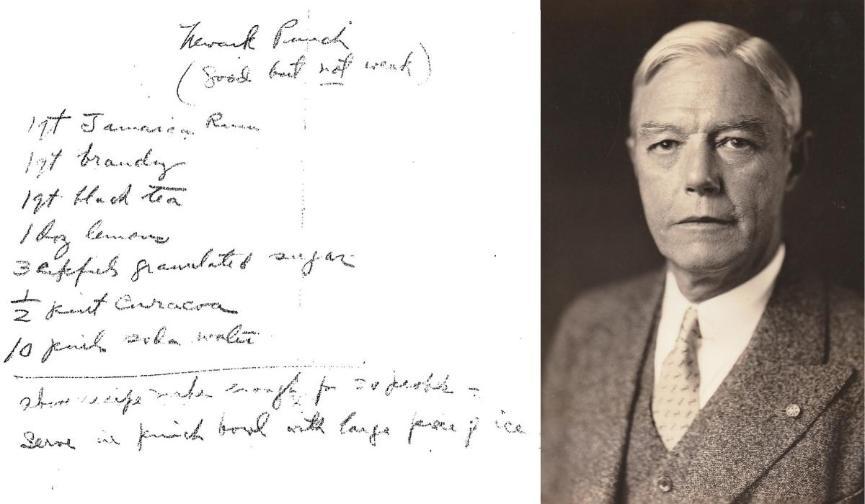 Newark Punch
(Good but not weak)
1 qt Jamaica Rum
1 qt brandy
1 qt black tea
1 doz lemons
3 cupfuls granulated sugar
1/2 pint Curacoa
10 pints soba water
above recipe makes enough for 20 people -
serve in punch bowl with large piece of ice